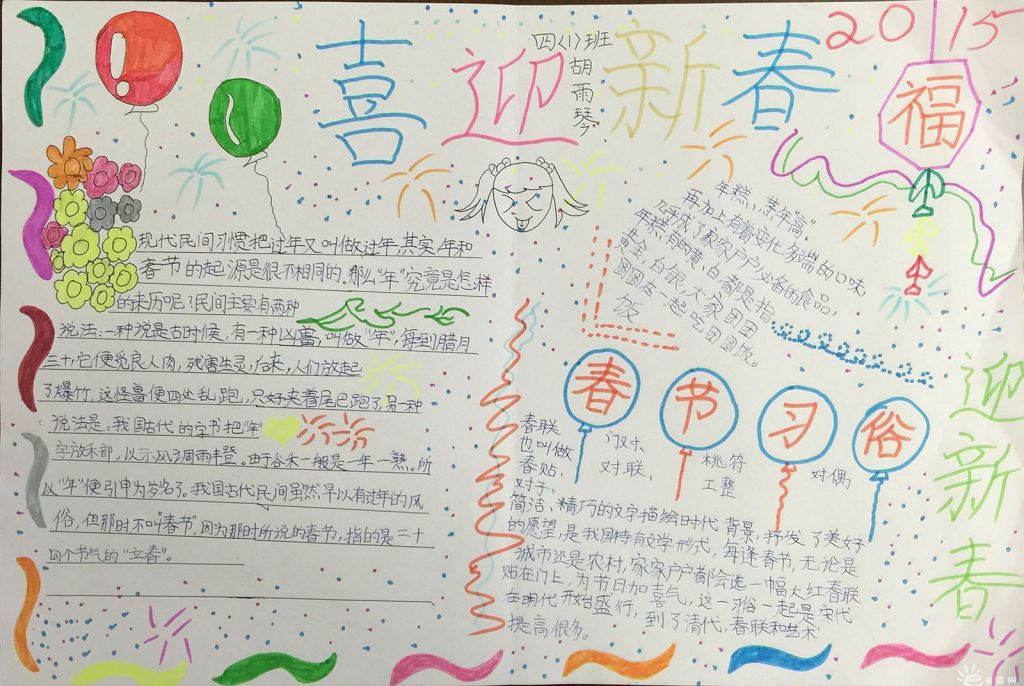 喜迎新春
四(1)班
胡雨琴
2015
福
现代民间习惯把过年又叫做过年,其实,年和
春节的起源是很不相同的。那么"年"究竟是怎样
的来历呢?民间主要有两种
说法:一种说是古时候,有一种凶兽,叫做"年",每到腊月
三十,它便说良人肉,残害生灵,后来,人们放起
了爆竹,这怪兽便四处乱跑,只好夹着尾巴跑了,另一种
说法是:我国古代的字书把"年"
字放禾部,以示风调雨丰登。由于谷禾一般是一年一熟。所
以"年"便引申为岁名了。我国古代民间虽然早以有过年的风
俗,但那时不叫"春节",因为那时所说的春节,指的是二十
四个节气的"立春"。
年糕,蒸年"高"
再加上有着变化多端的口味
几乎成了家家户户必备的食品,
年糕有的黄,白都是指
黄金,白银,大家团团
圆圆在一起吃团圆饭。
饭
春节习俗
春联
也叫做
春贴、
对子、
门对、
对联、
桃符
工整
对偶
简洁,精巧的文字描绘时代背景,抒发了美好
的愿望,是我国特有文学形式,每逢春节,无论是
城市还是农村,家家户户都会选一幅大红春联
贴在门上,为节日加喜气,这一习俗一起是宋代
在明代开始盛行,到了清代,春联和艺术
提高很多。
迎新春